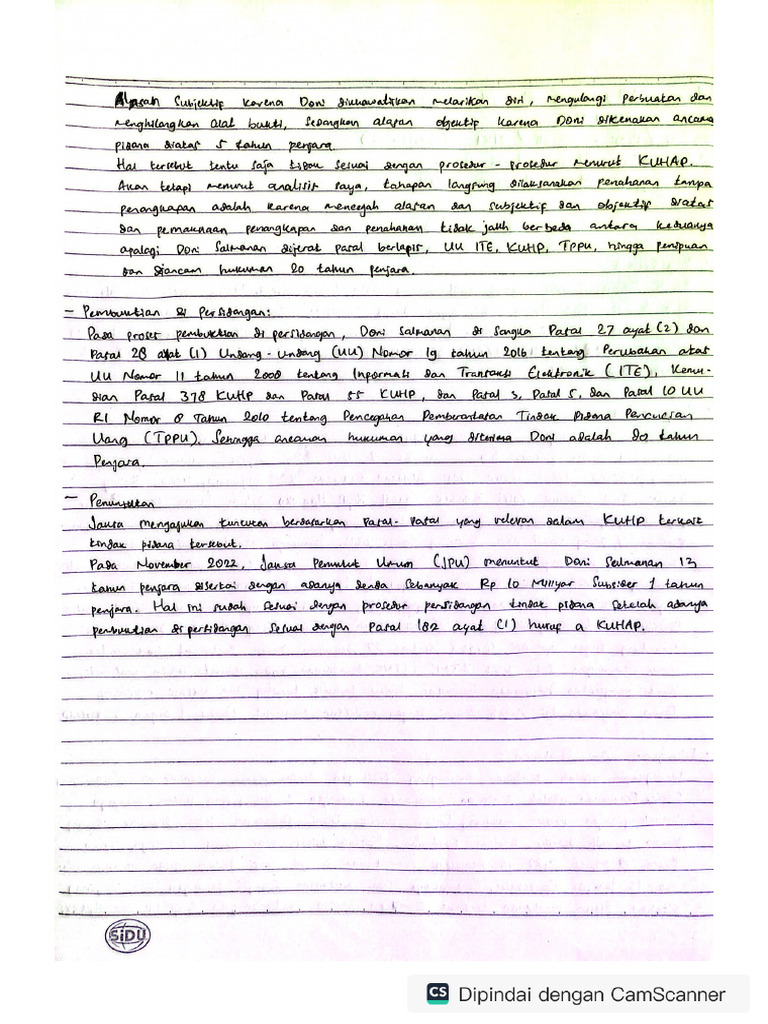 Alasan Subjektif karena Doni dikhawatirkan melarikan diri, mengulangi perbuatan dan
menghilangkan alat bukti, sedangkan alasan objektif karena Doni dikenakan ancama
pidana diatas 5 tahun penjara.
Hal tersebut tentu saja tidak sesuai dengan prosedur - prosedur menurut KUHAP.
Akan tetapi menurut analisis saya, tahapan langsung dilaksanakan penahanan tanpa
penangkapan adalah karena mencegah alasan dan subjektif dan objektif diatas
dan pemaknaan penangkapan dan penahanan tidak jauh berbeda antara keduanya
apalagi Doni Salmanan dijerat pasal berlapis, UU ITE, KUHP, TPPU, hingga penipuan
dan diancam hukuman 20 tahun penjara.
- Pembuktian di Persidangan:
Pada proses pembuktian di persidangan, Doni Salmanan di sangka Pasal 27 ayat (2) dan
Pasal 28 ayat (1) Undang-undang (UU) Nomor 19 tahun 2016 tentang Perubahan atas
UU Nomor 11 tahun 2008 tentang Informasi dan Transaksi Elektronik (ITE), Kemu-
dian Pasal 378 KUHP dan Pasal 55 KUHP, dan Pasal 3, Pasal 5, dan Pasal 10 UU
RI Nomor 8 Tahun 2010 tentang Pencegahan Pemberantatan Tindak Pidana Pencucian
Uang (TPPU). Sehingga ancaman hukuman yang diterima Doni adalah 20 tahun
Penjara.
- Penuntutan
Jaksa mengajukan tuntutan berdasarkan Pasal-Pasal yang relevan dalam KUHP terkait
tindak pidana tersebut.
Pada November 2022, Jaksa Penuntut Umum (JPU) menuntut Doni Salmanan 13
tahun penjara disertai dengan adanya denda sebanyak Rp 10 Milliyar Subsider 1 tahun
penjara. Hal ini sudah sesuai dengan prosedur persidangan tindak pidana setelah adanya
pembuktian di persidangan sesuai dengan Pasal 182 ayat (1) huruf a KUHAP.
SiDU
CS Dipindai dengan CamScanner